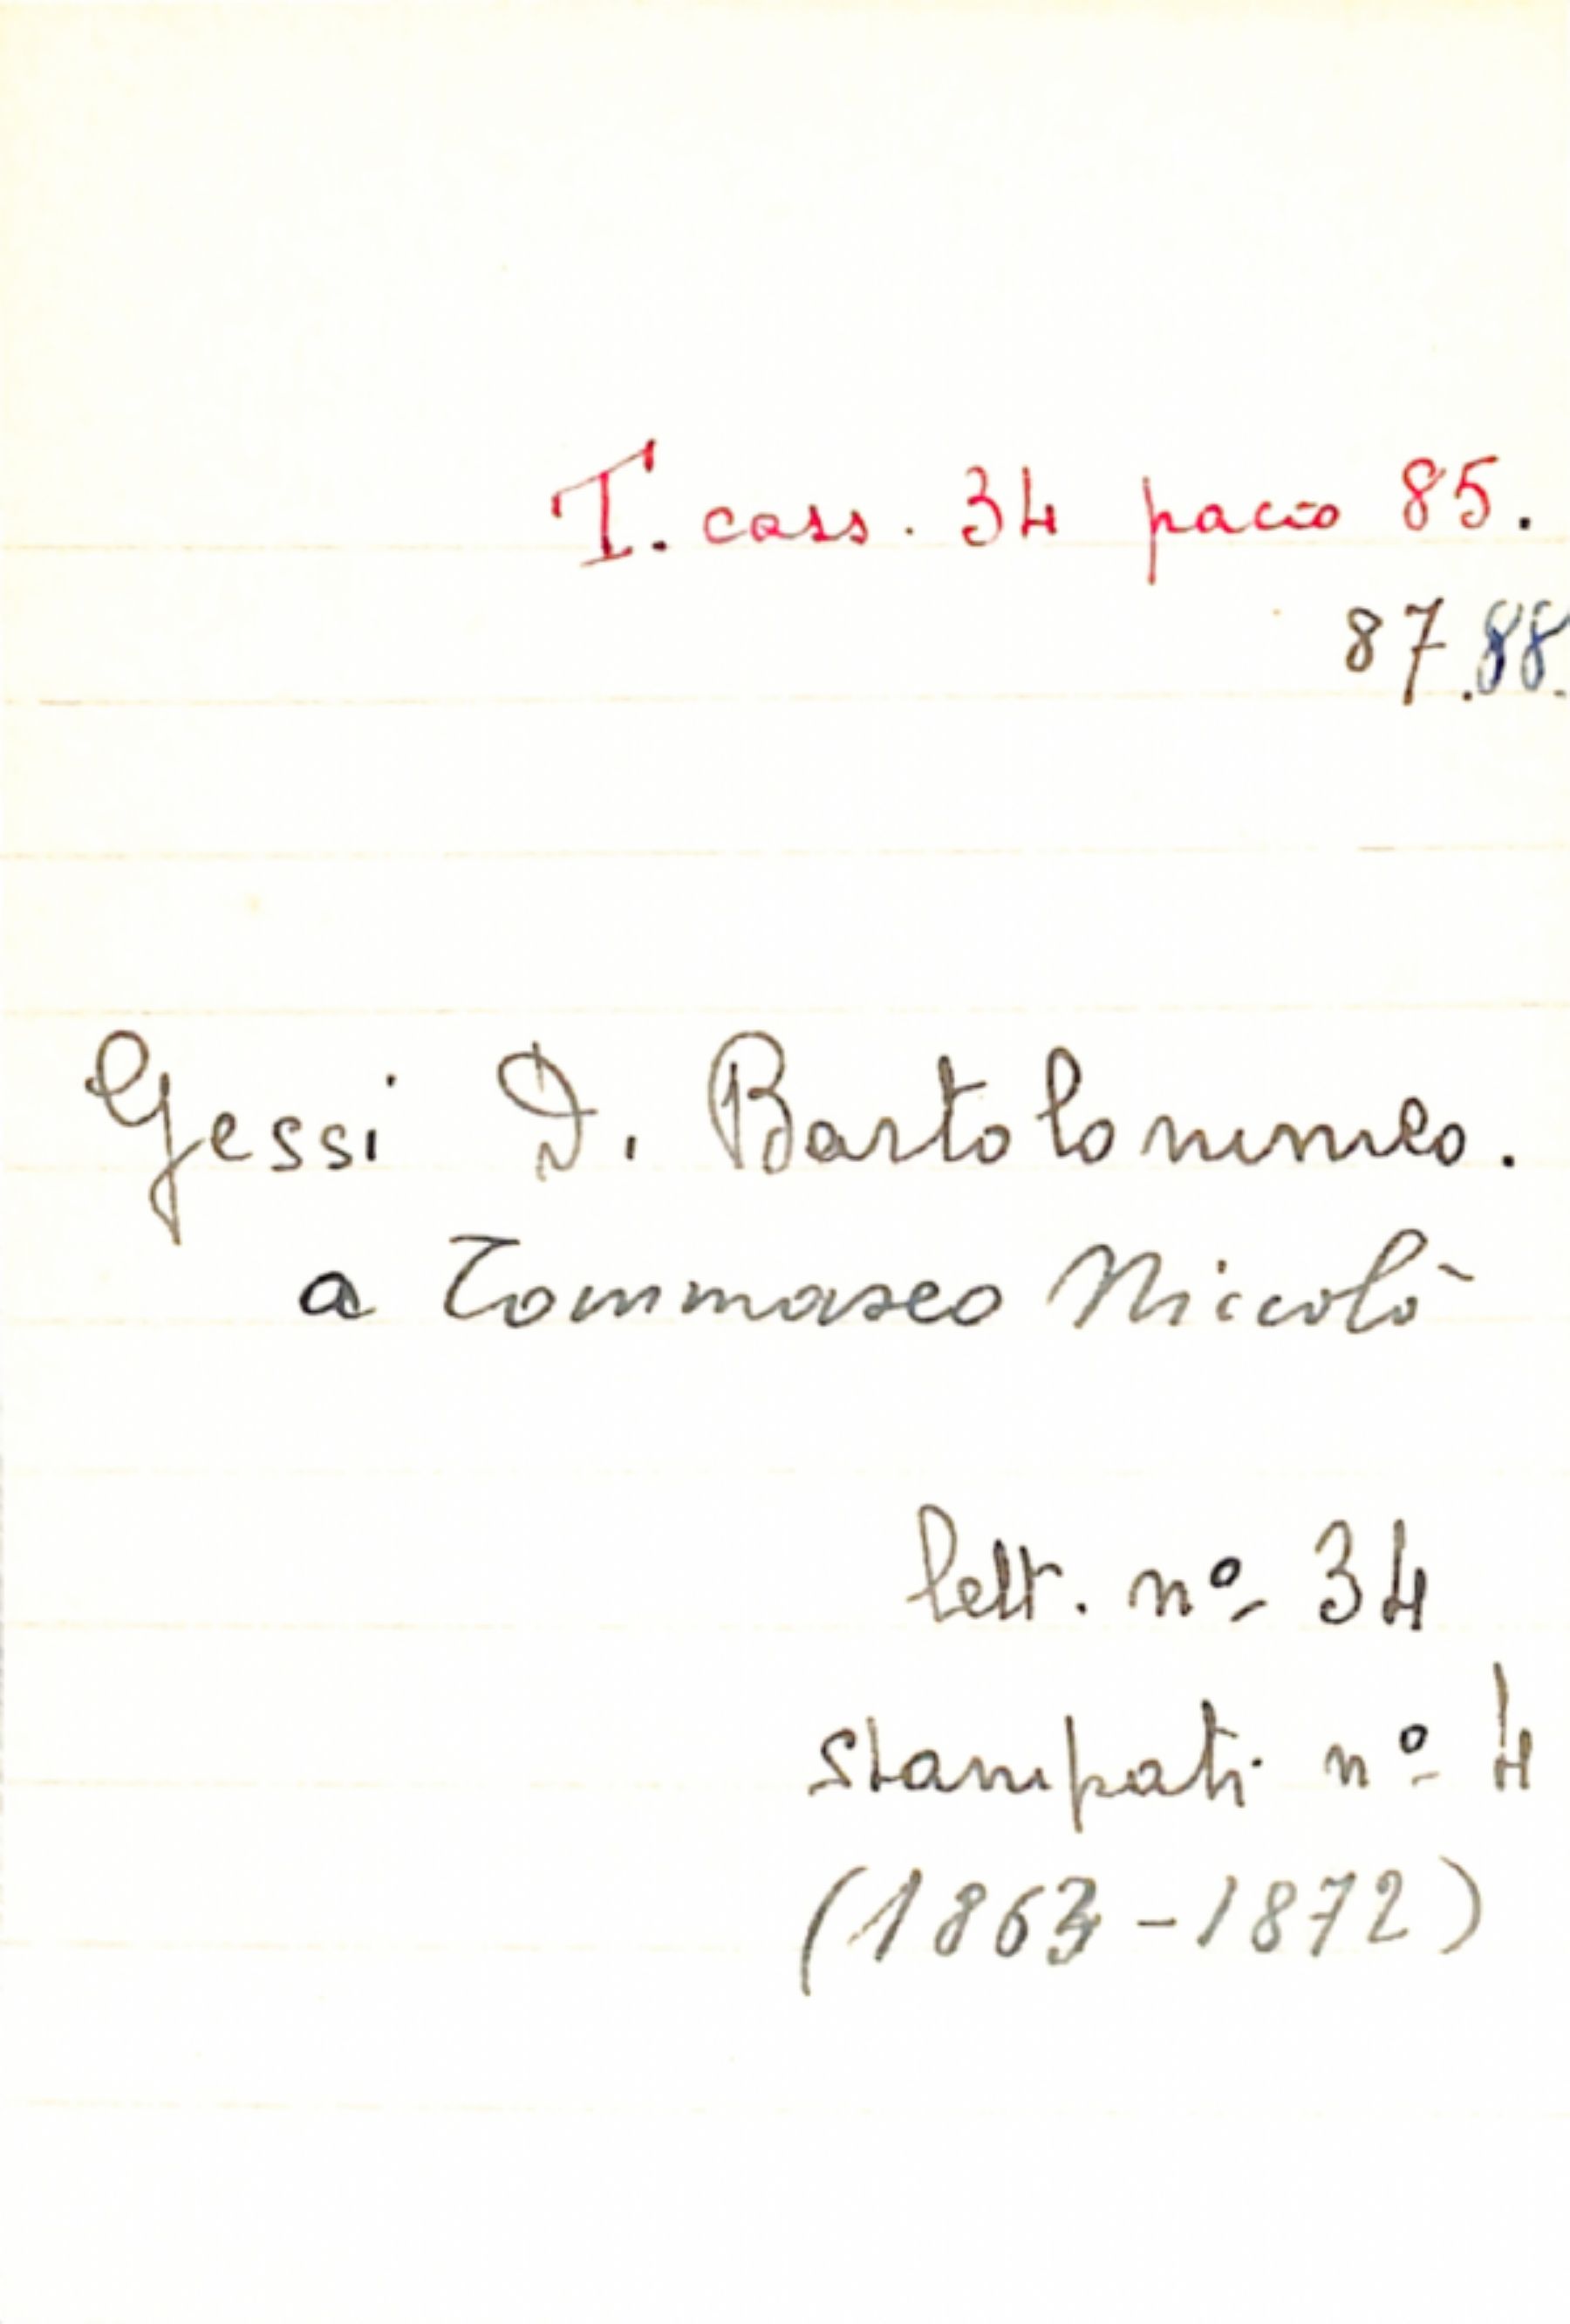 T. cass. 34 pacco 85.
87.88.
Gessi D. Bartolommeo.
a Tommaseo Niccolò
lett. nº 34
stampati nº 4
(1863-1872)